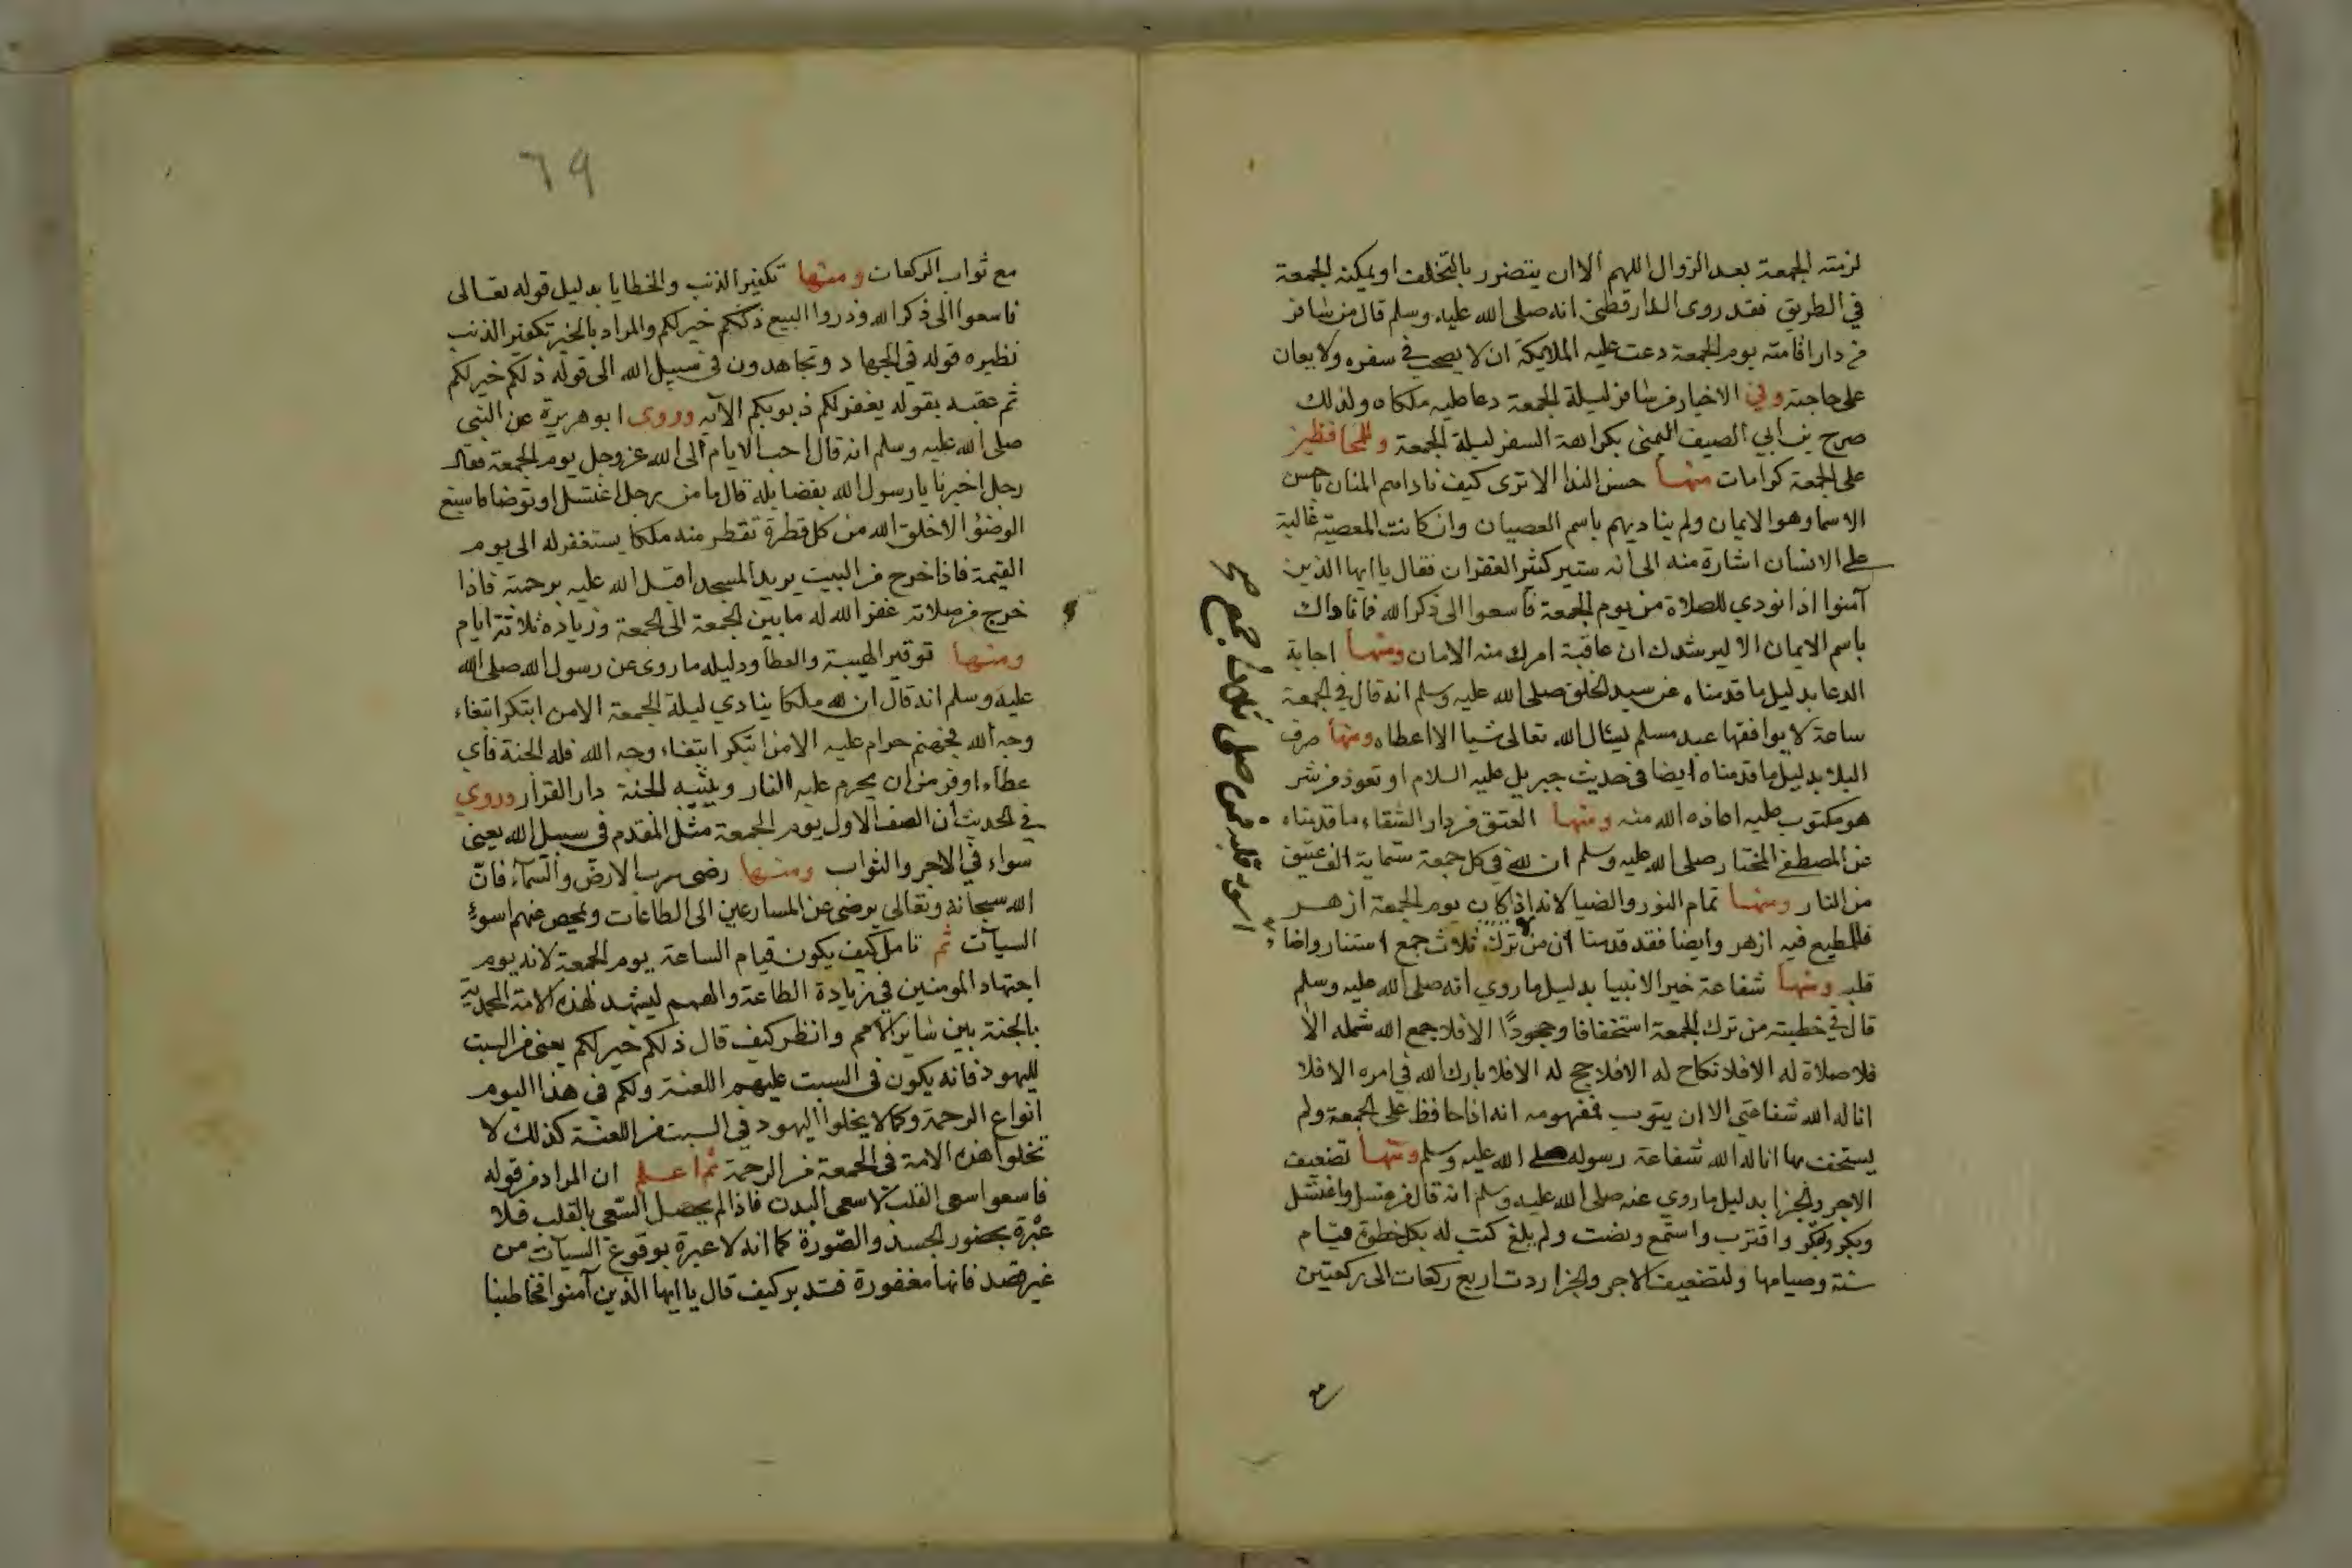 لزمته الجمعة بعد الزوال اللهم الا ان يتضرر بالتخلف او يمكنه الجمعة
في الطريق فقد روى الدارقطني انه صلى الله عليه وسلم قال من سافر
من دار اقامته يوم الجمعة دعت عليه الملايكة ان لا يصحب في سفره ولا يعان
على حاجته وفي الاخبار من سافر ليلة الجمعة دعا عليه ملكاه ولذلك
صرح بن ابي الصيف اليمني بكراهة السفر ليلة الجمعة وللمحافظين
على الجمعة كرامات منها حسن الندا الا ترى كيف ناداهم المنان باحسن
الاسما وهو الايمان ولم يناديهم باسم العصيان وان كانت المعصية غالبة
على الانسان اشارة منه الى انه ستير كثير الغفران فقال يا ايها الذين
آمنوا اذا نودي للصلاة من يوم الجمعة فاسعوا الى ذكر الله فما ناداك
باسم الايمان الا ليرشدك ان عاقبة امرك منه الامان ومنها اجابة
الدعا بدليل ما قدمناه عن سيد الخلق صلى الله عليه وسلم انه قال في الجمعة
ساعة لا يوافقها عبد مسلم يسال الله تعالى شيا الا اعطاه ومنها صرف
البلا بدليل ما قدمناه ايضا في حديث جبريل عليه السلام او تعوذ من شر
هو مكتوب عليه اعاذه الله منه ومنها العتق من دار الشقاء ما قدمناه
عن المصطفى المختار صلى الله عليه وسلم ان لله في كل جمعة ستماية الف عتيق
من النار ومنها تمام النور والضيا لانه اذا كان يوم الجمعة ازهر
فللمطيع فيه ازهر وايضا فقد قدمنا ان من ترك ثلاث جمع استنار واضا
قلبه ومنها شفاعة خير الانبيا بدليل ما روي انه صلى الله عليه وسلم
قال في خطبته من ترك الجمعة استخفافا وجحودًا الا فلا جمع الله شمله الا
فلا صلاة له الا فلا نكاح له الا فلا حج له الا فلا بارك الله في امره الا فلا
اناله الله شفاعتي الا ان يتوب فمفهومه انه اذا حافظ على الجمعة ولم
يستخف بها اناله الله شفاعة رسوله صلى الله عليه وسلم ومنها تضعيف
الاجر والجزا بدليل ما روي عنه صلى الله عليه وسلم انه قال من غسل واغتسل
وبكر وابتكر واقترب واستمع ونصت ولم يلغ كتب له بكل خطوة قيام
سنة وصيامها ولتضعيف الاجر والجزا ردت اربع ركعات الى ركعتين
مع
اسود قلبه فمن صلى ثلاث جمع صح
٦٩
مع ثواب الركعات ومنها تكفير الذنب والخطايا بدليل قوله تعالى
فاسعوا الى ذكر الله وذروا البيع ذلكم خير لكم والمراد بالخير تكفير الذنب
نظيره قوله في الجهاد وتجاهدون في سبيل الله الى قوله ذلكم خير لكم
ثم عقبه بقوله يغفر لكم ذنوبكم الآية وروى ابو هريرة عن النبي
صلى الله عليه وسلم انه قال احب الايام الى الله عز وجل يوم الجمعة فقال
رجل اخبرنا يا رسول الله بفضايله قال ما من رجل اغتسل او توضا فاسبغ
الوضؤ الا خلق الله من كل قطرة تقطر منه ملكا يستغفر له الى يوم
القيمة فاذا خرج من البيت يريد المسجد اقبل الله عليه برحمته فاذا
خرج من صلاته غفر الله له ما بين الجمعة الى الجمعة وزياده ثلاثة ايام
ومنها توقير الهيبة والعطا ودليله ما روى عن رسول الله صلى الله
عليه وسلم انه قال ان لله ملكا ينادي ليلة الجمعة الا من ابتكر ابتغاء
وجه الله فجهنم حرام عليه الا من ابتكر ابتغاء وجه الله فله الجنة فاي
عطاء اوفر من ان يحرم عليه النار ويثيبه الجنة دار القرار وروي
في الحديث ان الصف الاول يوم الجمعة مثل المقدم في سبيل الله يعني
سواء في الاجر والثواب ومنها رضى رب الارض والسمآء فان
الله سبحانه وتعالى يرضى عن المسارعين الى الطاعات ويمحص عنهم اسوء
السيآت ثم تامل كيف يكون قيام الساعة يوم الجمعة لانه يوم
اجتهاد المومنين في زيادة الطاعة والهمم ليشهد لهذه الامة المحمدية
بالجنة بين ساير الامم وانظر كيف قال ذلكم خير لكم يعني من السبت
لليهود فانه يكون في السبت عليهم اللعنة ولكم في هذا اليوم
انواع الرحمة وكما لا يخلوا اليهود في السبت من اللعنة كذلك لا
تخلوا هذه الامة في الجمعة من الرحمة ثم اعلم ان المراد من قوله
فاسعوا سعى القلب لا سعى البدن فاذا لم يحصل السعى بالقلب فلا
عبرة بحضور الجسد والصورة كما انه لا عبرة بوقوع السيآت من
غير قصد فانها مغفورة فتدبر كيف قال يا ايها الذين آمنوا فخاطبنا